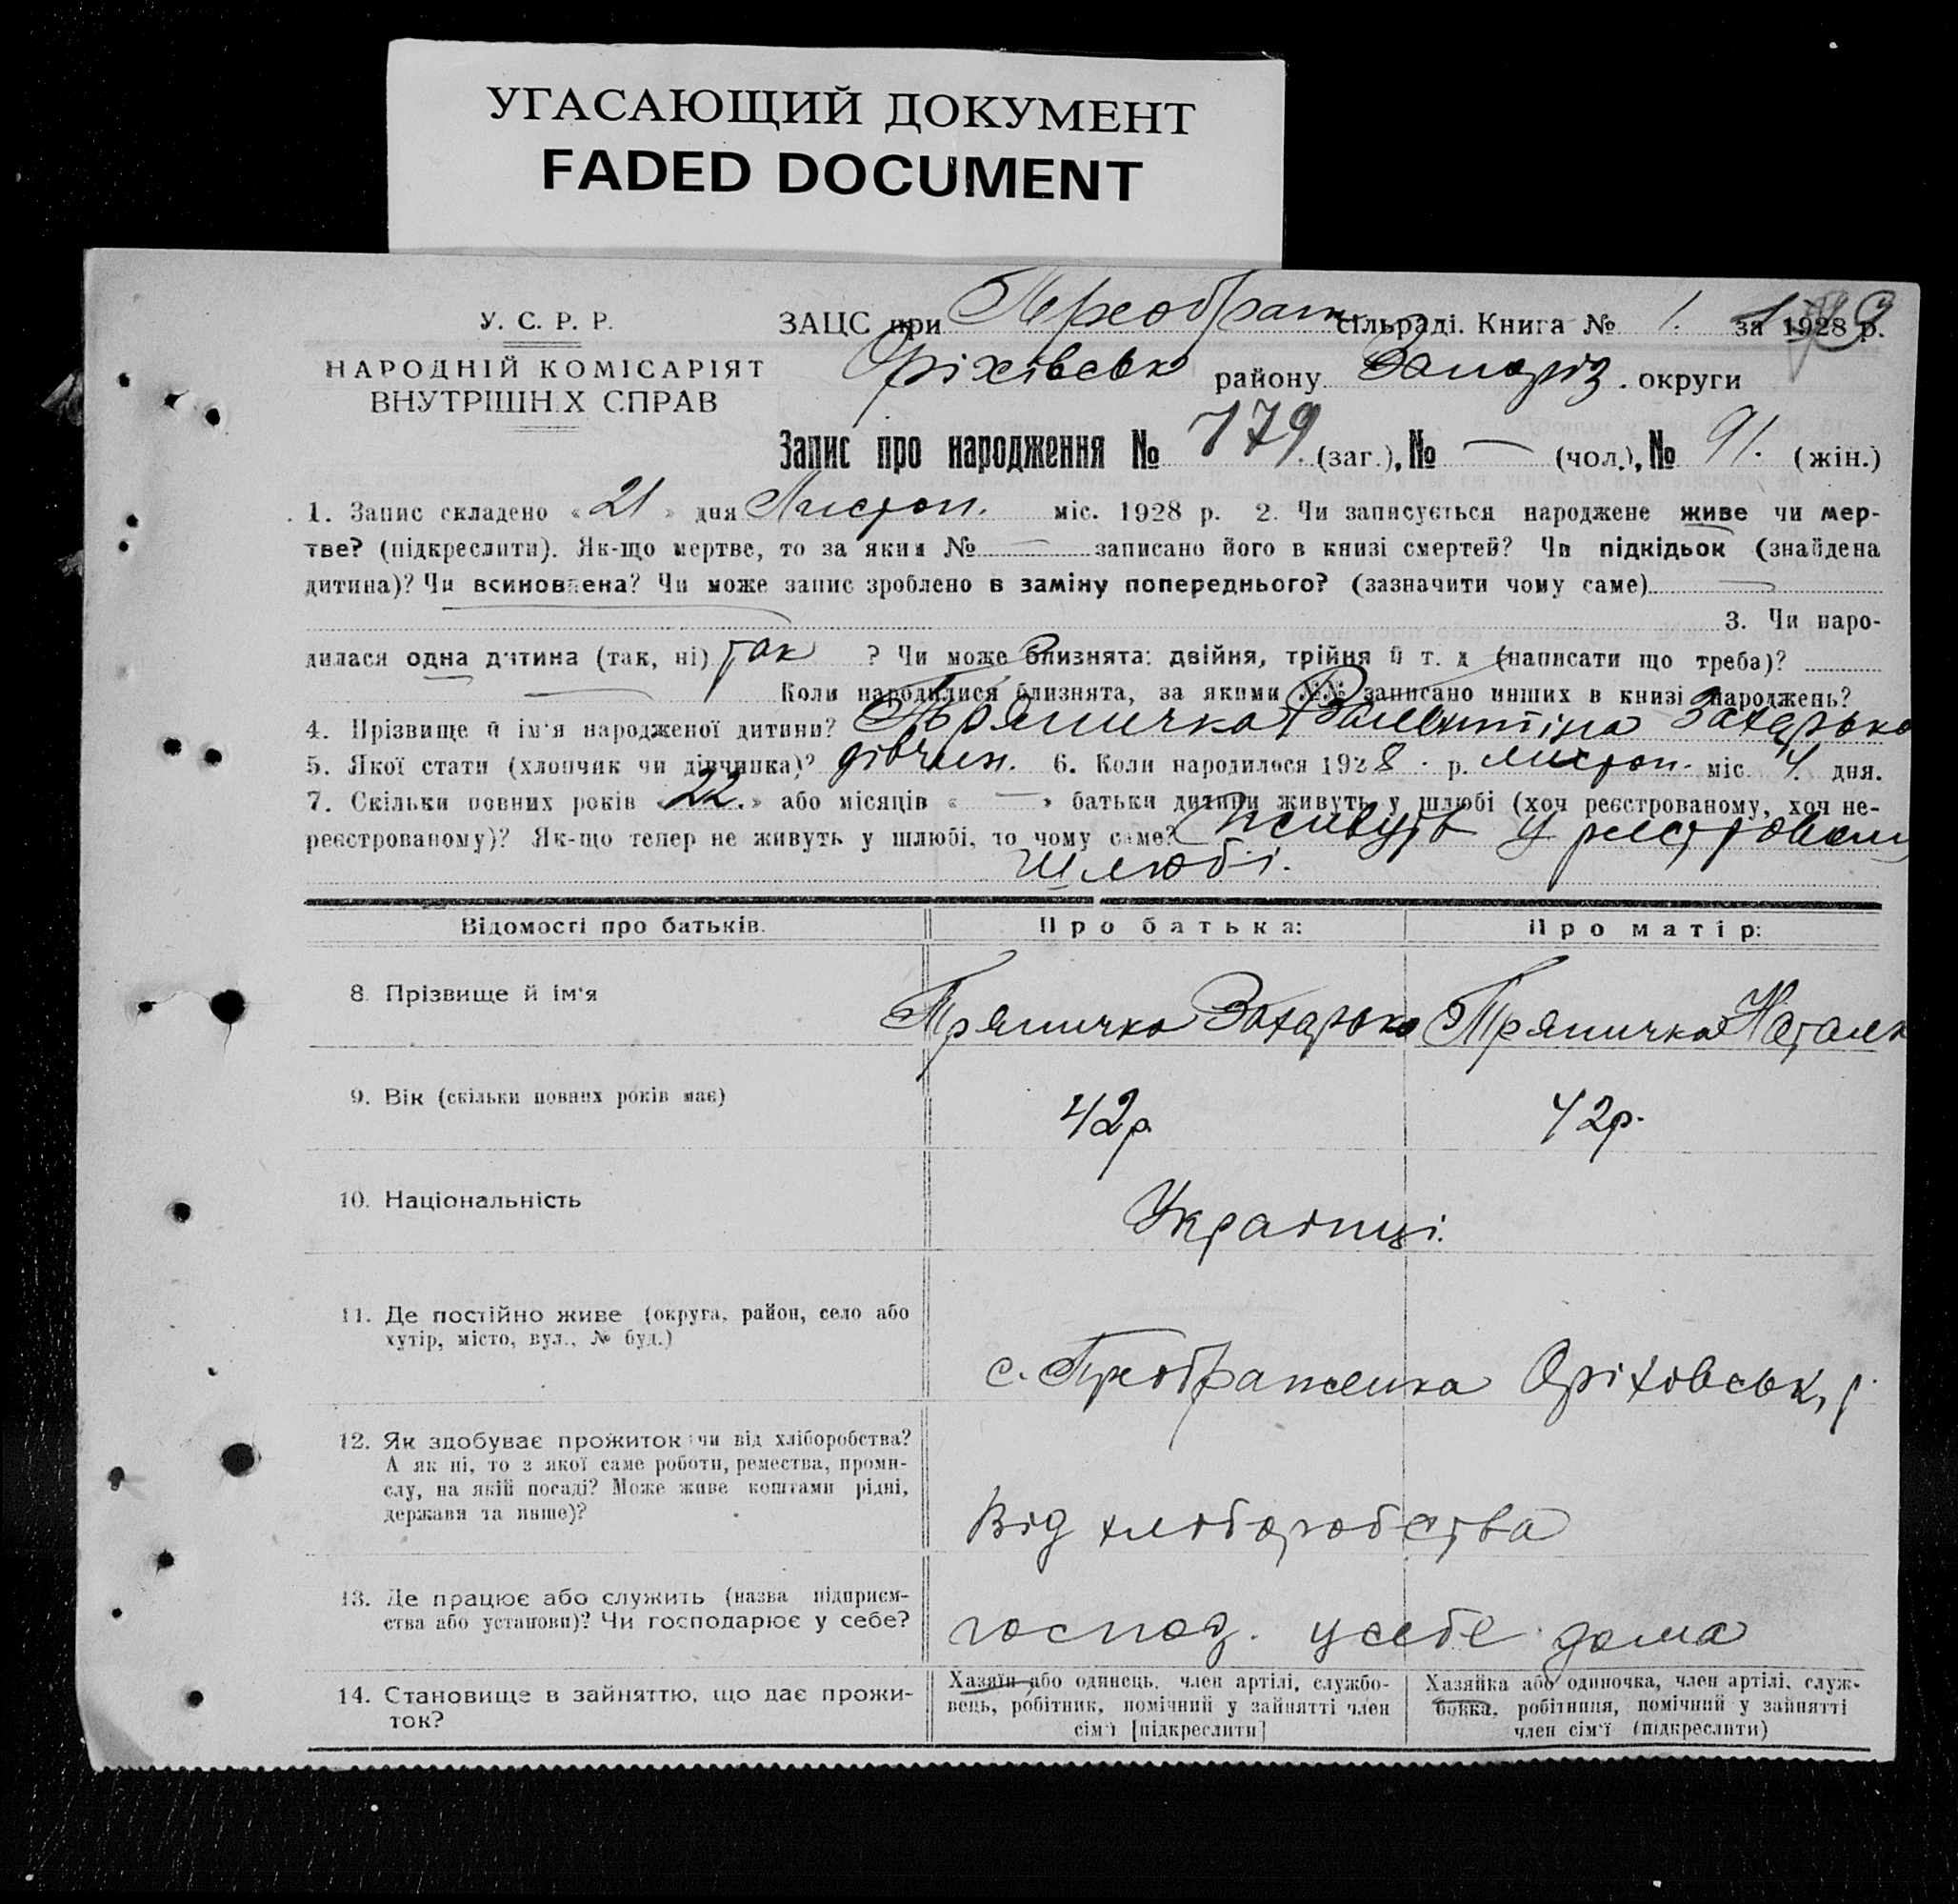 УГАСАЮЩИЙ ДОКУМЕНТ
FADED DOCUMENT
У. С. Р. Р.
НАРОДНІЙ КОМІСАРІЯТ
ВНУТРІШНІХ СПРАВ
ЗАЦС при Преображ сільраді. Книга № 1. за 1928 р.
Оріхівськ району Запоріз. округи
Запис про народження № 179 (заг.), № — (чол.), № 91. (жін.)
1. Запис складено «21» дня Листоп. міс. 1928 р. 2. Чи записується народжене живе чи мер-
тве? (підкреслити). Як-що мертве, то за яким № — записано його в книзі смертей? Чи підкідьок (знайдена
дитина)? Чи всиновлена? Чи може запис зроблено в заміну попереднього? (зазначити чому саме) —
3. Чи наро-
дилася одна дитина (так, ні) так ? Чи може близнята: двійня, трійня й т. д (написати що треба)?
Коли народилися близнята, за якими №№ записано инших в книзі народжень?
4. Прізвище й ім'я народженої дитини? Пряничка Валентіна Захарько
5. Якої стати (хлопчик чи дівчинка)? дівчин. 6. Коли народилося 1928. р. листоп. міс. 4. дня.
7. Скільки повних років «22.» або місяців « — » батьки дитини живуть у шлюбі (хоч реєстрованому, хоч не-
реєстрованому)? Як-що тепер не живуть у шлюбі, то чому саме? живуть у
шлюбі.
Відомості про батьків. Про батька: Про матір:
8. Прізвище й ім'я Пряничка Захарько Пряничка
9. Вік (скільки повних років має) 42р. 42р.
10. Національність Українці.
11. Де постійно живе (округа, район, село або
хутір, місто, вул., № буд.)
с. Преображенка Оріховськ, р.
12. Як здобуває прожиток: чи від хліборобства?
А як ні, то з якої саме роботи, ремества, проми-
слу, на якій посаді? Може живе коштами рідні,
держави та инше)?
Від хліборобства
13. Де працює або служить (назва підприєм-
ства або установи)? Чи господарює у себе?
господ. у себе дома
14. Становище в зайняттю, що дає прожи-
ток?
Хазяїн або одинець, член артілі, службо-
вець, робітник, помічний у зайнятті член
сім'ї [підкреслити]
Хазяйка або одиночка, член артілі, служ-
бовка, робітниця, помічний у зайнятті
член сім'ї (підкреслити)